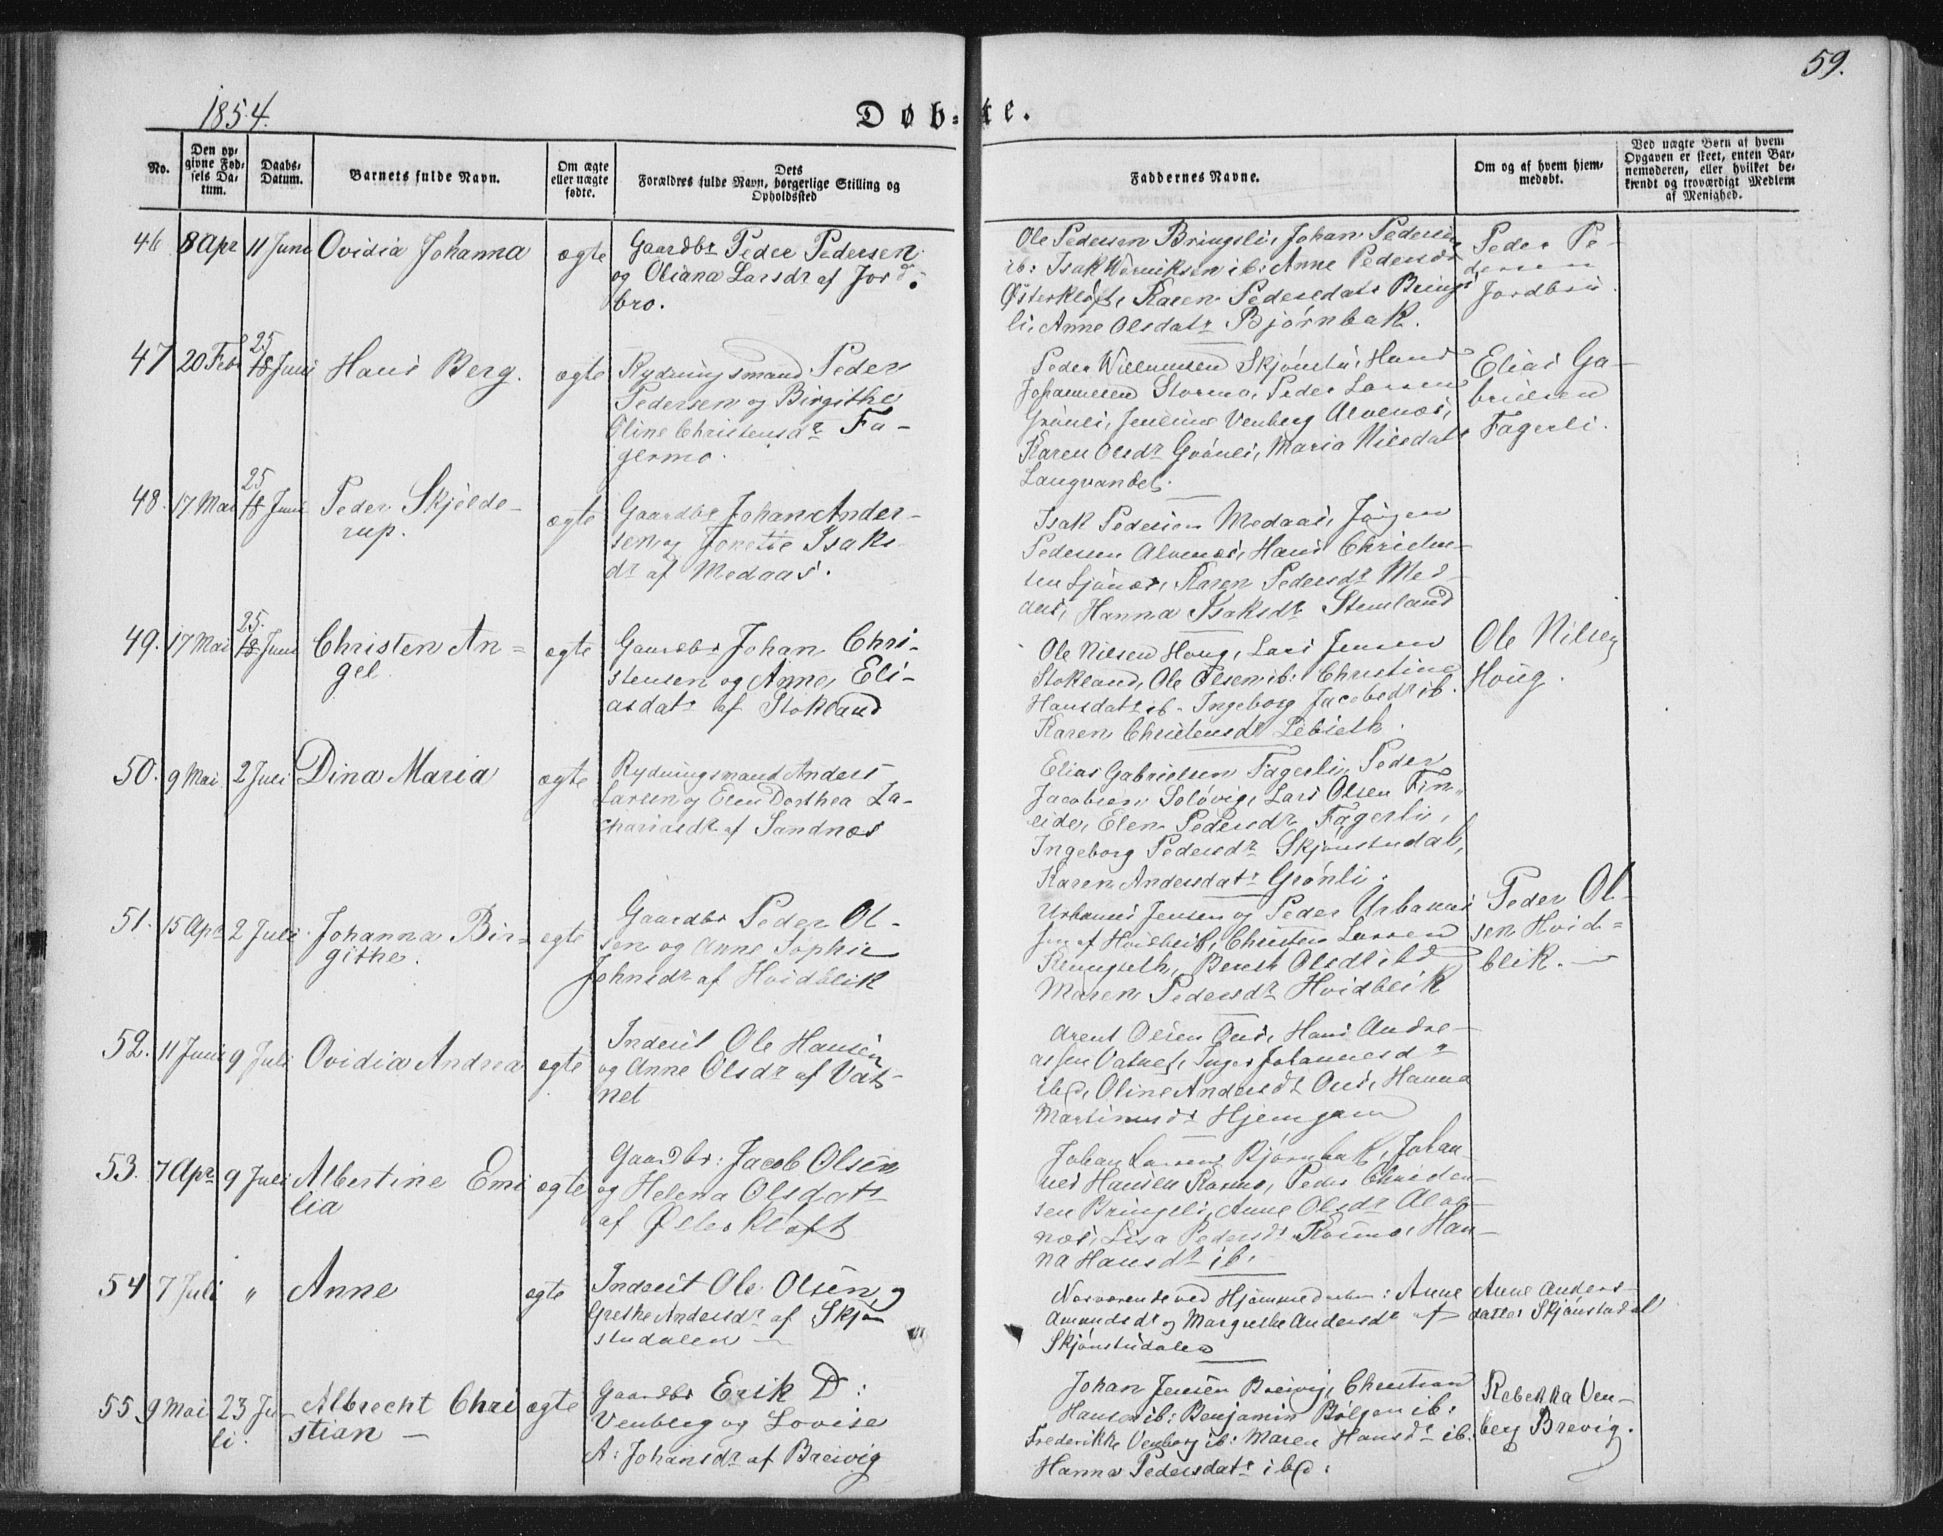 59.
1854.
Døb=te.
No.
Den op-
givne Fød-
sels Da-
tum.
Daabs-
Datum.
Barnets fulde Navn.
Om ægte
eller uægte
fødte.
Dets
Forældres fulde Navn, borgerlige Stilling og
Opholdssted
Faddernes Navne.
Om og af hvem hjem-
medøbt.
Ved uægte Børn af hvem
Opgaven er skeet, enten Bar-
nemoderen, eller hvilket be-
kjendt og troværdigt Medlem
af Menighed.
46 8 Apr 11 Juni Ovidia Johanna ægte Gaardbr Peder Pedersen
og Oliana Larsdr af Jord
bro.
Ole Pedersen Bringsli, Johan Pedersen
ib: Isak ib: Anne Pedersdr
Østerkløft, Karen Pedersdatr Brings
li, Anne Olsdatr Bjørnbak.
Peder Pe-
dersen
Jordbru.
47 20 Feb 25
18 Juni Hans Berg. ægte Rydningsmand Peder
Pedersen og Birgithe
Oline Christensdr Fa-
germo.
Peder Willumsen Skjønstu, Hans
Johannesen Stormo, Peder Larsen
Grønli, Venberg Alvenes,
Karen Olsdr Grønli, Maria Nilsdatr
Langvandet.
Elias Ga-
brielsen
Fagerli.
48. 17 Mai 25
18 Juni Peder Skjelde-
rup. ægte Gaardbr Johan Ander-
sen og Jonette Isaks
dr af Medaas.
Isak Pedersen Medaas, Jørgen
Pedersen Alvenes, Hans Christen-
sen Karen Pedersdr Med-
aas, Hanna Isaksdr Stemland
49. 17 Mai 25.
18 Juni Christen An=
gel. ægte Gaardbr Johan Chri-
stensen og Anne Eli-
asdatr af Stokland
Ole Nilsen Houg, Lars Jensen
Stokland, Ole Olsen ib: Christine
Hansdatr ib. Ingeborg Jacobsdr ib.
Karen Christensdr
Ole Nilsen
Houg.
50. 9 Mai 2 Juli Dina Maria ægte Rydningsmand Anders
Larsen og Elen Dorthea Za-
chariasdr af Sandnes
Elias Gabrielsen Fagerli, Peder
Jacobsen Soløvig, Lars Olsen Fin-
eide, Elen Pedersdr Fagerli,
Ingeborg Pedersdr Skjønstudal,
Karen Andersdatr Grønli.
51. 15 Apr 2 Juli Johanna Bir=
githe. ægte Gaardbr Peder Ol-
sen og Anne Sophie
Johnsdr af Hvidblik
Urbanus Jensen og Peder Urbanus
sen af Hvidblik, Christen Larsen
Berit Olsdr ibd
Maren Pedersdr Hvidblik
Peder Ol-
sen Hvid=
blik.
52. 11 Juni 9 Juli Ovidia Andrea ægte Inderst Ole Hansen
og Anne Olsdr af Vat-
net
Arent Olsen Hans Andre-
assen Vatnet, Inger Johannesdr
ibd, Oline Andersdr Hanna
Martinusdr Hjemgam
53. 7 Apr 9 Juli Albertine Emi
lia ægte Gaardbr: Jacob Olsen
og Helena Olsdatr
af Østerkløft
Johan Larsen Bjørnbak, Johan-
nes Hansen Peder Christen-
sen Bringsli, Anne Olsdr Alve-
nes, Lisa Pedersdr Han-
na Hansdr ib.
54 7 Juli " Anne ægte Inderst Ole Olsen og
Grethe Andersdr af Skjøn
studalen
Nærværende ved Hjemmedaaben: Anne
Amundsdr og Margrethe Andersdr af
Skjønstudalen
Anne Anders-
datter Skjønstudal
55 9 Mai 23 Ju-
li. Albrecht Chri
stian - ægte Gaardbr Erik D:
Venberg og Lovise
A: Johansdr af Breivig
Johan Jensen Breivig, Christian
Hansen ib: Benjamin ib:
Frederikke Venberg ib: Maren Hansdr ib:
Hanna Pedersdatr ibd:
Rebekka Ven-
berg Brevig.